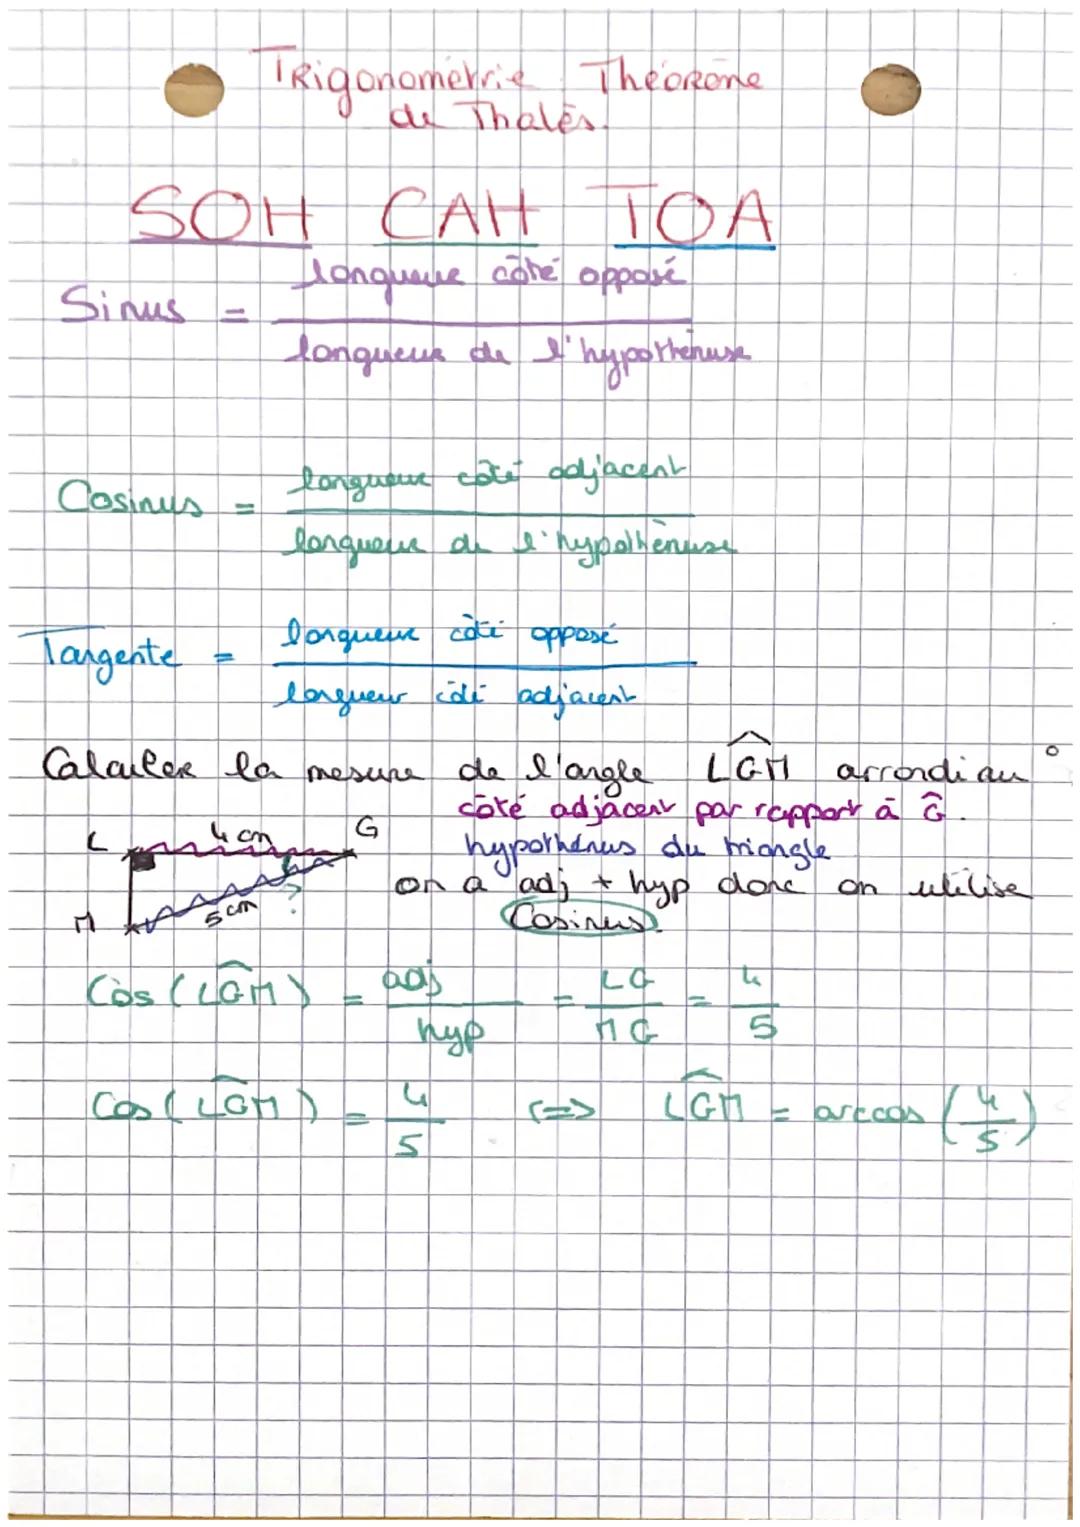 TRigonométrie Théorème
de Thalès.
SOH CAH TOA
Sinus = longueur côté opposé
longueur de l'hypothénuse
Cosinus = longueur côté adjacent
longueur de l'hypothénuse
Tangente = longueur côté opposé
longueur côté adjacent
Calculer la mesure de l'angle LGM arrondi au °
côté adjacent par rapport à Ĝ.
L 4 cm G
hypothénus du triangle
on a adj + hyp donc on utilise
M 5 cm ?
Cosinus.
Cos (LGM) = adj/hyp = LG/MG = 4/5
Cos (LGM) = 4/5 <=> LGM = arccos (4/5)